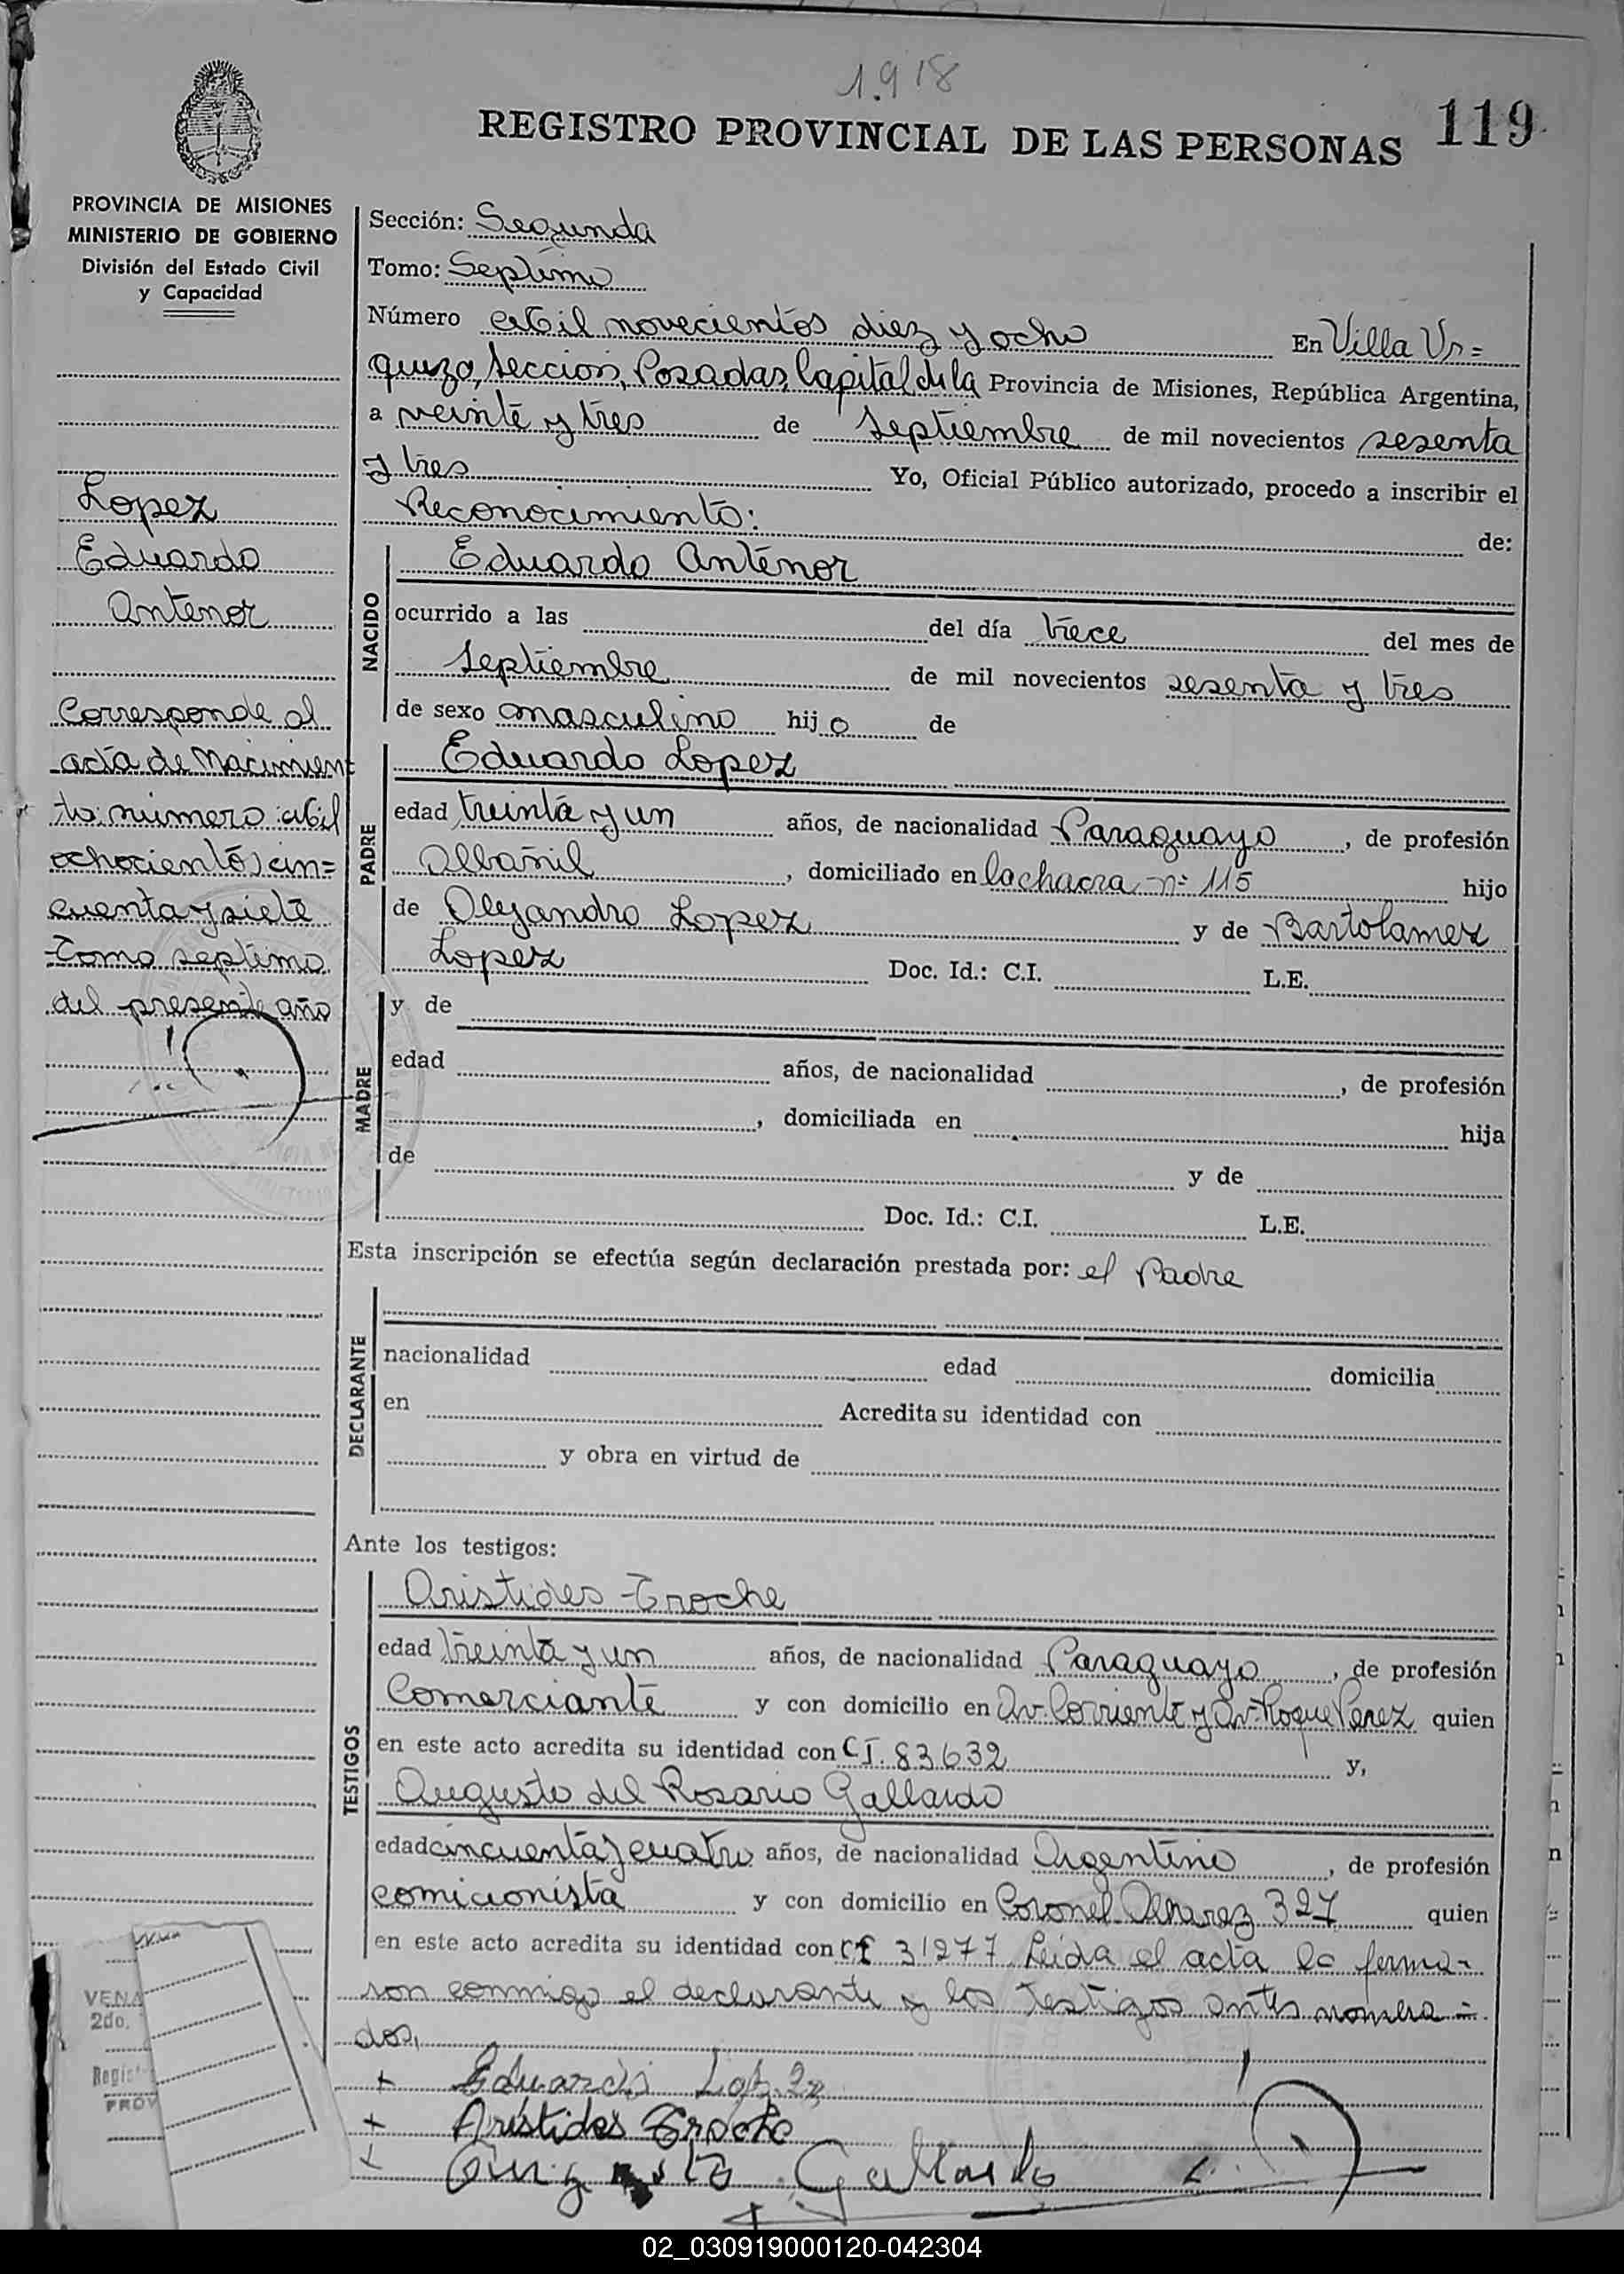 1.918
REGISTRO PROVINCIAL DE LAS PERSONAS 119
PROVINCIA DE MISIONES
MINISTERIO DE GOBIERNO
División del Estado Civil
y Capacidad
Lopez
Eduardo
Antenor
Corresponde al
acta de Nacimient
to número Mil
ochocientos cin=
cuenta y siete
Tomo septimo
del presente año
Sección: Segunda
Tomo: Septimo
Número Mil novecientos diez y ocho En Villa Ur=
quiza, Sección, Posadas, Capital de la Provincia de Misiones, República Argentina,
a veinte y tres de Septiembre de mil novecientos sesenta
y tres Yo, Oficial Público autorizado, procedo a inscribir el
Reconocimiento: de:
NACIDO
Eduardo Antenor
ocurrido a las del día trece del mes de
Septiembre de mil novecientos sesenta y tres
de sexo masculino hijo de
PADRE
Eduardo Lopez
edad treinta y un años, de nacionalidad Paraguayo, de profesión
Albañil, domiciliado en la chacra nº 115 hijo
de Alejandro Lopez y de Bartolamez
Lopez Doc. Id.: C.I. L.E.
MADRE
y de
edad años, de nacionalidad , de profesión
, domiciliada en hija
de y de
Doc. Id.: C.I. L.E.
Esta inscripción se efectúa según declaración prestada por: el Padre
DECLARANTE
nacionalidad edad domicilia
en Acredita su identidad con
y obra en virtud de
Ante los testigos:
TESTIGOS
Aristides Troche
edad treinta y un años, de nacionalidad Paraguayo, de profesión
Comerciante y con domicilio en Av. Corriente y Av. Roque Perez quien
en este acto acredita su identidad con C.I. 83.632 y,
Augusto del Rosario Gallardo
edad cincuenta y cuatro años, de nacionalidad Argentino, de profesión
comicionista y con domicilio en Coronel Alvarez 327 quien
en este acto acredita su identidad con CI 31277 Leida el acta la firma-
ron conmigo el declarante y los testigos antes nombra=
dos,
+ Eduardo Lopez
+ Aristides Troche
+ Augusto Gallardo
VENA
2do.
Regist
PROV
02_030919000120-042304